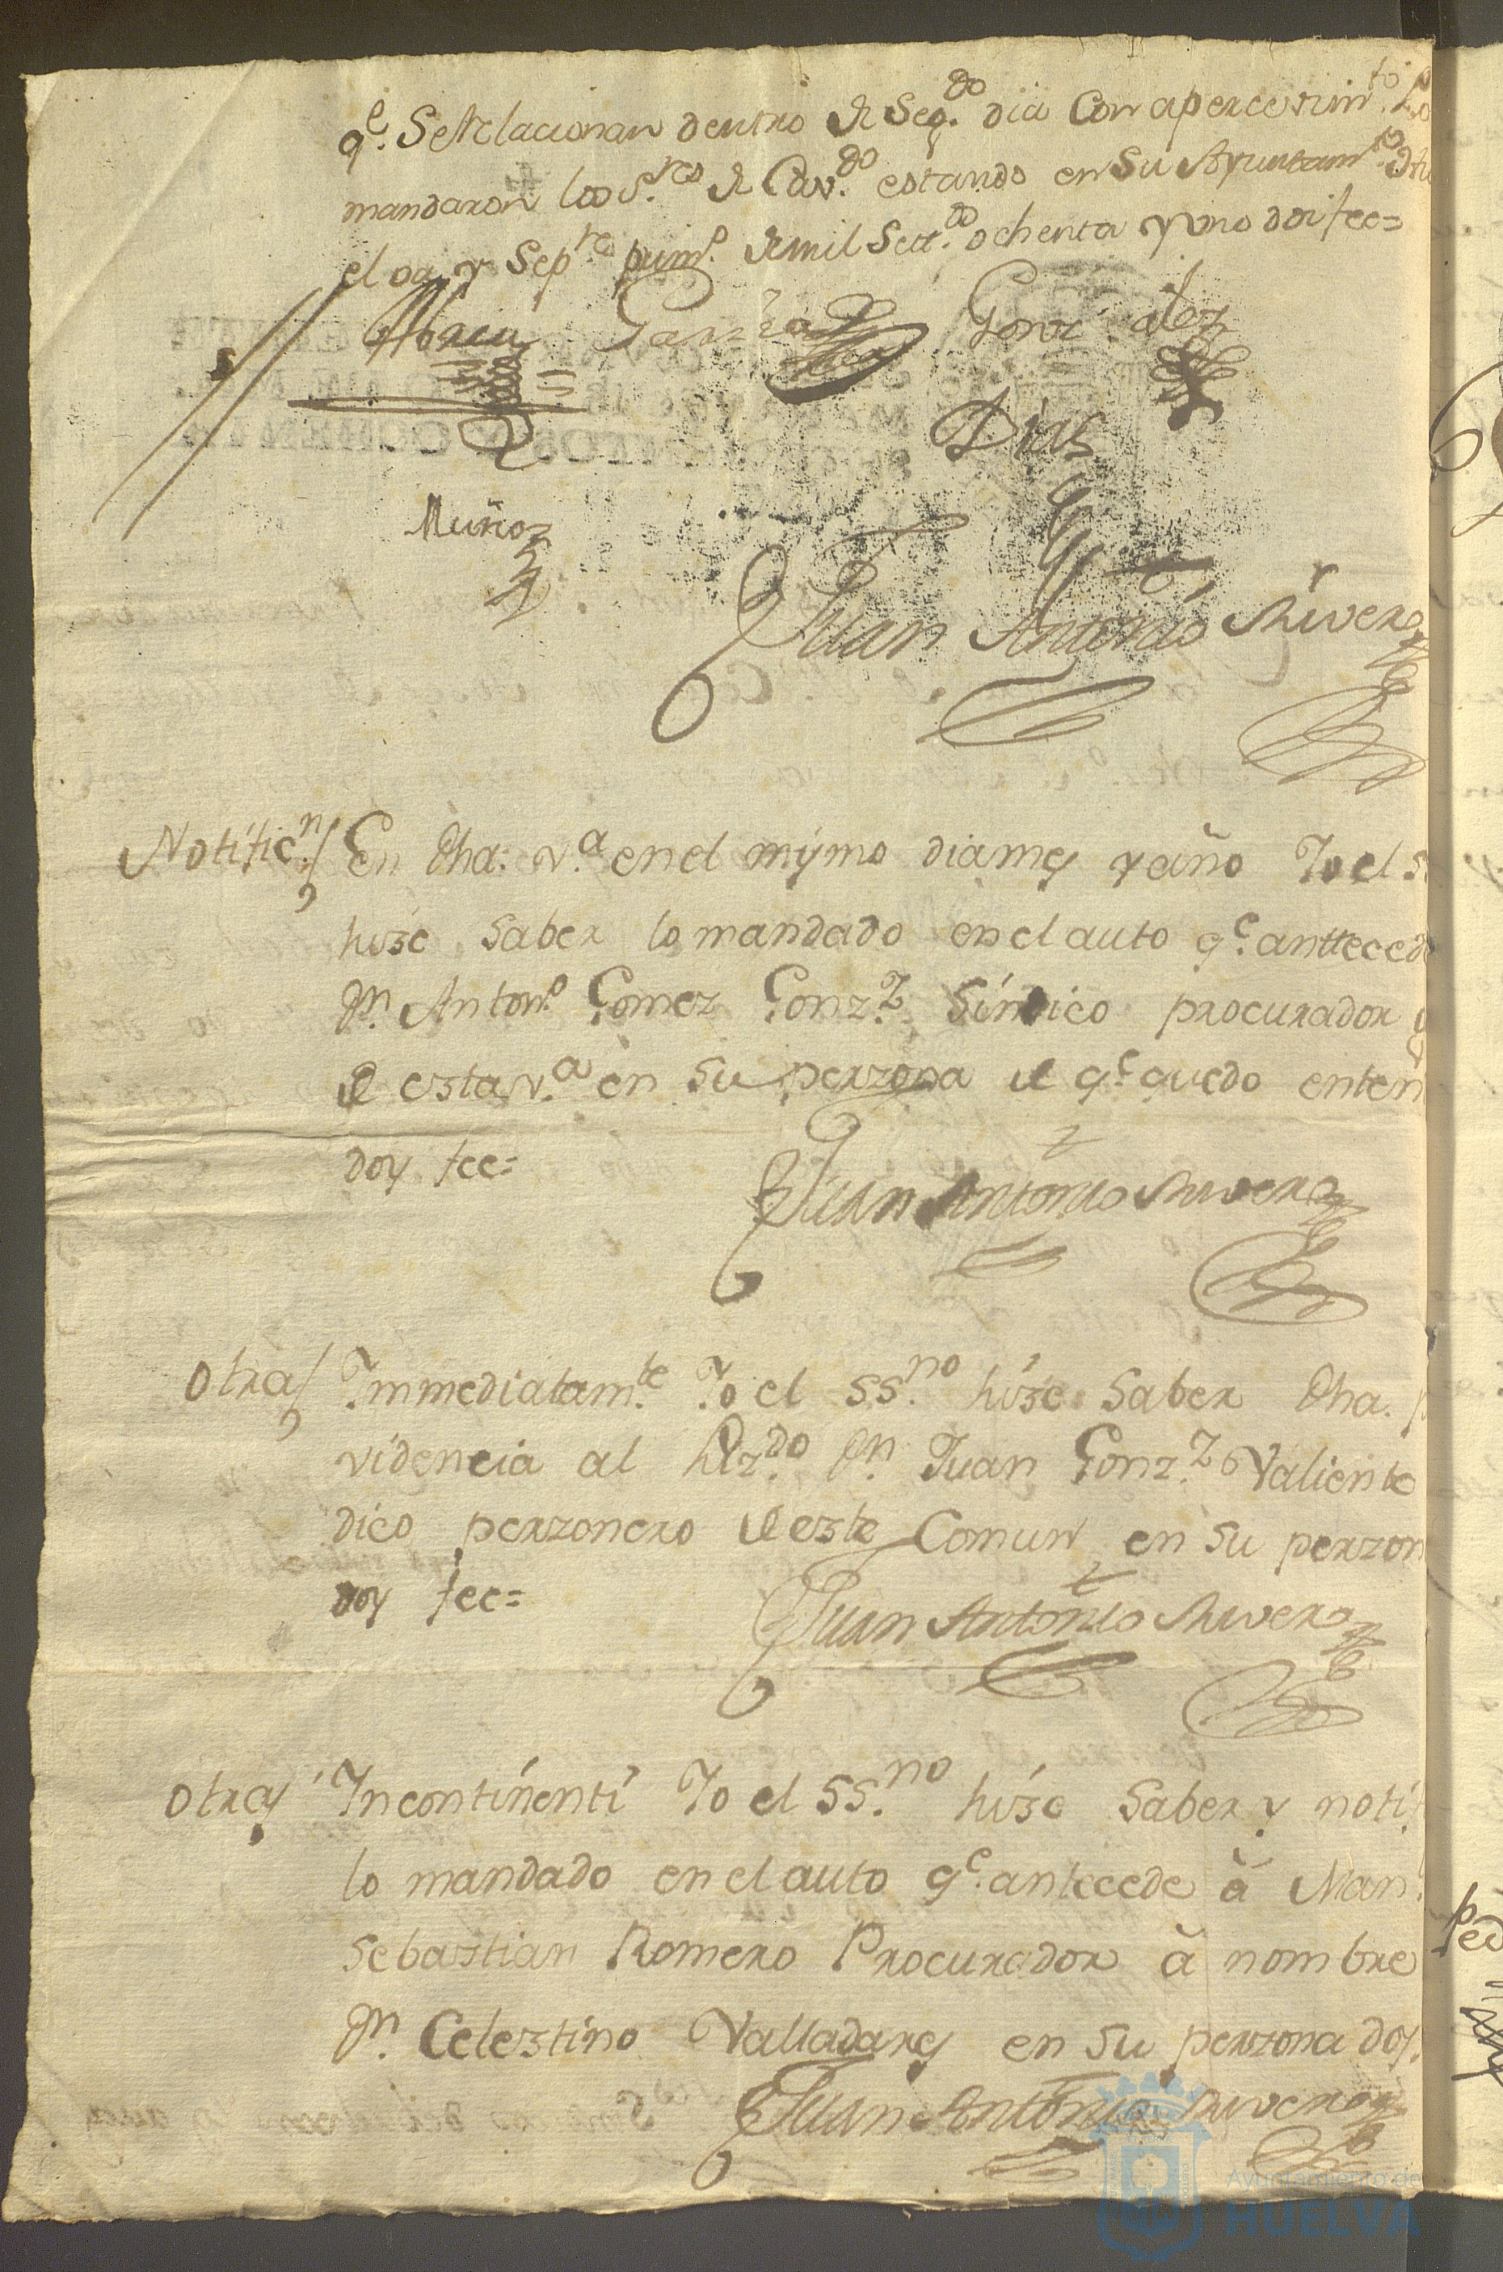 q.e Se Relacionan dentro de Seg.do dia Con apercevim.to Lo
mandaron los S.res de Cav.do estando en Su Ayuntam.to
el oa y Sep.re prim.o de mil Sett.os ochenta y uno doi fee=
Garzia Gonzalez
Dias
Muñoz
Juan Antonio Rivero
Notific.n En dha. v.a en el mismo dia mes y año Yo el s
hize Saber lo mandado en el auto q.e anttecede
Dn. Anton.o Gomez Gonz.z Síndico procurador
de esta v.a en su perzona de q.e quedo enten
doy fee=
Juan Antonio Rivero
Otra/ Immediatam.te Yo el SS.no hize Saber dha. p
videncia al Lizdo. Dn. Juan Gonz.z Valiente
dico perzonero de este Comun en su perzon
doy fee=
Juan Antonio Rivero
Otra/ Incontinenti Yo el SS.no hize Saber y notif
lo mandado en el auto q.e antecede à Man.
Sebastian Romero Procurador à nombre
Dn. Celestino Valladares en su perzona doy.
Juan Antonio Rivero
Ayuntamiento de
HUELVA